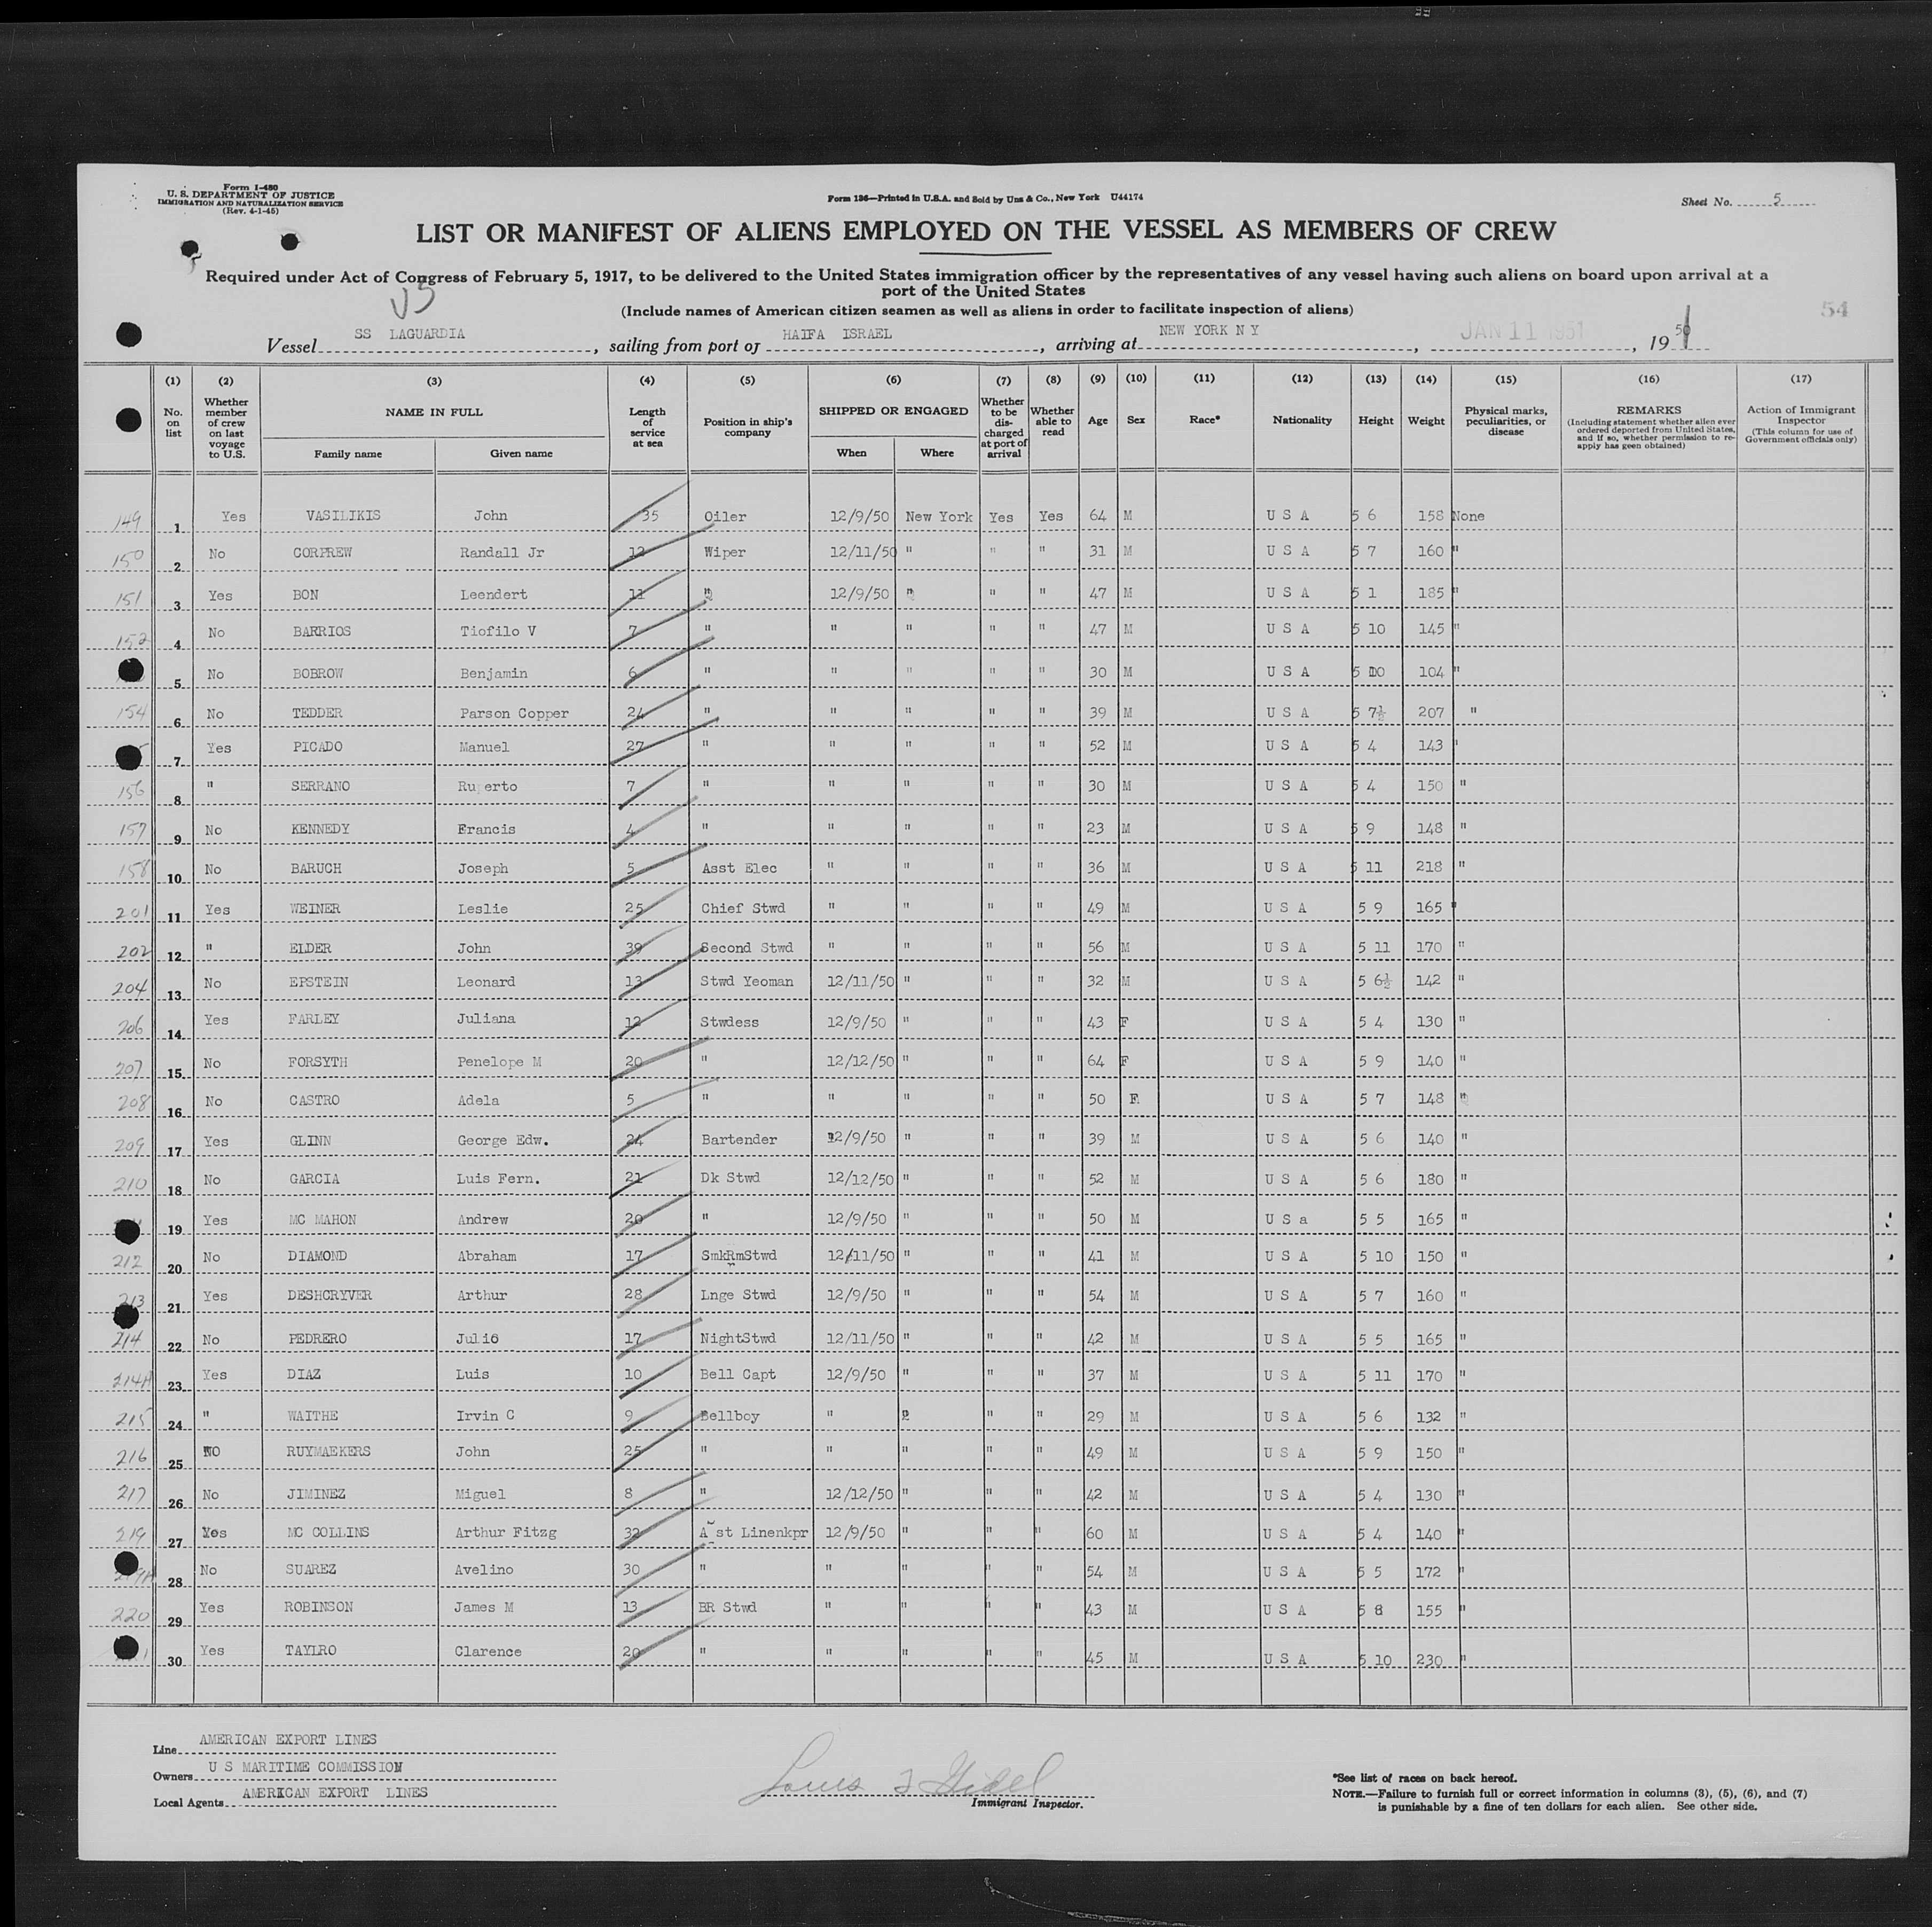 Form I-480
U. S. DEPARTMENT OF JUSTICE
IMMIGRATION AND NATURALIZATION SERVICE
(Rev. 4-1-45)
Form 186—Printed in U.S.A. and Sold by Unz & Co., New York U44174
Sheet No. 5
LIST OR MANIFEST OF ALIENS EMPLOYED ON THE VESSEL AS MEMBERS OF CREW
Required under Act of Congress of February 5, 1917, to be delivered to the United States immigration officer by the representatives of any vessel having such aliens on board upon arrival at a
port of the United States
(Include names of American citizen seamen as well as aliens in order to facilitate inspection of aliens)
54
Vessel SS LAGUARDIA, sailing from port of HAIFA ISRAEL, arriving at NEW YORK N Y, JAN 11 1951, 195
(1) (2) (3) (4) (5) (6) (7) (8) (9) (10) (11) (12) (13) (14) (15) (16) (17)
No. on list
Whether member of crew on last voyage to U.S.
NAME IN FULL
Family name
Given name
Length of service at sea
Position in ship's company
SHIPPED OR ENGAGED
When
Where
Whether to be discharged at port of arrival
Whether able to read
Age
Sex
Race*
Nationality
Height
Weight
Physical marks, peculiarities, or disease
REMARKS
(Including statement whether alien ever ordered deported from United States, and if so, whether permission to reapply has geen obtained)
Action of Immigrant Inspector
(This column for use of Government officials only)
149 1 Yes VASILIKIS John 35 Oiler 12/9/50 New York Yes Yes 64 M U S A 5 6 158 None
150 2 No CORPREW Randall Jr 12 Wiper 12/11/50 " " " 31 M U S A 5 7 160 "
151 3 Yes BON Leendert 11 " 12/9/50 " " " 47 M U S A 5 1 185 "
152 4 No BARRIOS Tiofilo V 7 " " " " " 47 M U S A 5 10 145 "
5 No BOBROW Benjamin 6 " " " " " 30 M U S A 5 10 104 "
154 6 No TEDDER Parson Copper 24 " " " " " 39 M U S A 5 7½ 207 "
7 Yes PICADO Manuel 27 " " " " " 52 M U S A 5 4 143 "
156 8 " SERRANO Ru erto 7 " " " " " 30 M U S A 5 4 150 "
157 9 No KENNEDY Francis 4 " " " " " 23 M U S A 5 9 148 "
158 10 No BARUCH Joseph 5 Asst Elec " " " " 36 M U S A 5 11 218 "
201 11 Yes WEINER Leslie 25 Chief Stwd " " " " 49 M U S A 5 9 165 "
202 12 " ELDER John 39 Second Stwd " " " " 56 M U S A 5 11 170 "
204 13 No EPSTEIN Leonard 13 Stwd Yeoman 12/11/50 " " " 32 M U S A 5 6½ 142 "
206 14 Yes FARLEY Juliana 12 Stwdess 12/9/50 " " " 43 F U S A 5 4 130 "
207 15 No FORSYTH Penelope M 20 " 12/12/50 " " " 64 F U S A 5 9 140 "
208 16 No CASTRO Adela 5 " " " " " 50 F U S A 5 7 148 "
209 17 Yes GLINN George Edw. 24 Bartender 12/9/50 " " " 39 M U S A 5 6 140 "
210 18 No GARCIA Luis Fern. 21 Dk Stwd 12/12/50 " " " 52 M U S A 5 6 180 "
19 Yes MC MAHON Andrew 20 " 12/9/50 " " " 50 M U S a 5 5 165 "
212 20 No DIAMOND Abraham 17 SmkRmStwd 12/11/50 " " " 41 M U S A 5 10 150 "
213 21 Yes DESHCRYVER Arthur 28 Lnge Stwd 12/9/50 " " " 54 M U S A 5 7 160 "
214 22 No PEDRERO Julio 17 NightStwd 12/11/50 " " " 42 M U S A 5 5 165 "
214A 23 Yes DIAZ Luis 10 Bell Capt 12/9/50 " " " 37 M U S A 5 11 170 "
215 24 " WAITHE Irvin C 9 Bellboy " " " " 29 M U S A 5 6 132 "
216 25 NO RUYMAEKERS John 25 " " " " " 49 M U S A 5 9 150 "
217 26 No JIMINEZ Miguel 8 " 12/12/50 " " " 42 M U S A 5 4 130 "
219 27 Yes MC COLLINS Arthur Fitzg 32 A st Linenkpr 12/9/50 " " " 60 M U S A 5 4 140 "
28 No SUAREZ Avelino 30 " " " " " 54 M U S A 5 5 172 "
220 29 Yes ROBINSON James M 13 BR Stwd " " " " 43 M U S A 5 8 155 "
30 Yes TAYLRO Clarence 20 " " " " " 45 M U S A 5 10 230 "
Line AMERICAN EXPORT LINES
Owners U S MARITIME COMMISSION
Local Agents AMERICAN EXPORT LINES
Immigrant Inspector.
*See list of races on back hereof.
NOTE.—Failure to furnish full or correct information in columns (3), (5), (6), and (7)
is punishable by a fine of ten dollars for each alien. See other side.